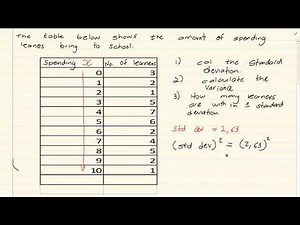 The table below shows the amount of spending
leanes bring to school.
Spending x No. of leaners
0 3
1 2
2 1
3 5
4 7
5 6
6 2
7 4
8 5
9 2
10 1
1) cal the standard
deviation.
2) calculate the
Variance
3) How many leaners
are with in 1 standard
deviation
std dev = 2,63
(std dev)² = (2,63)²